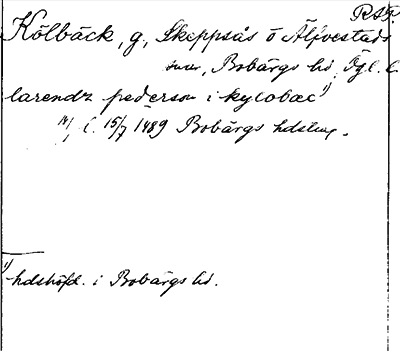 RSg.
Kölbäck, g, Skeppsås o Älfvestads
snar, Bobärgs hd, Ögl. l.
larendz pederson i kylobac 1)
14/1 C. 15/7 1489 Bobärgs hdsting.
1) hdshöfd. i Bobärgs hd.